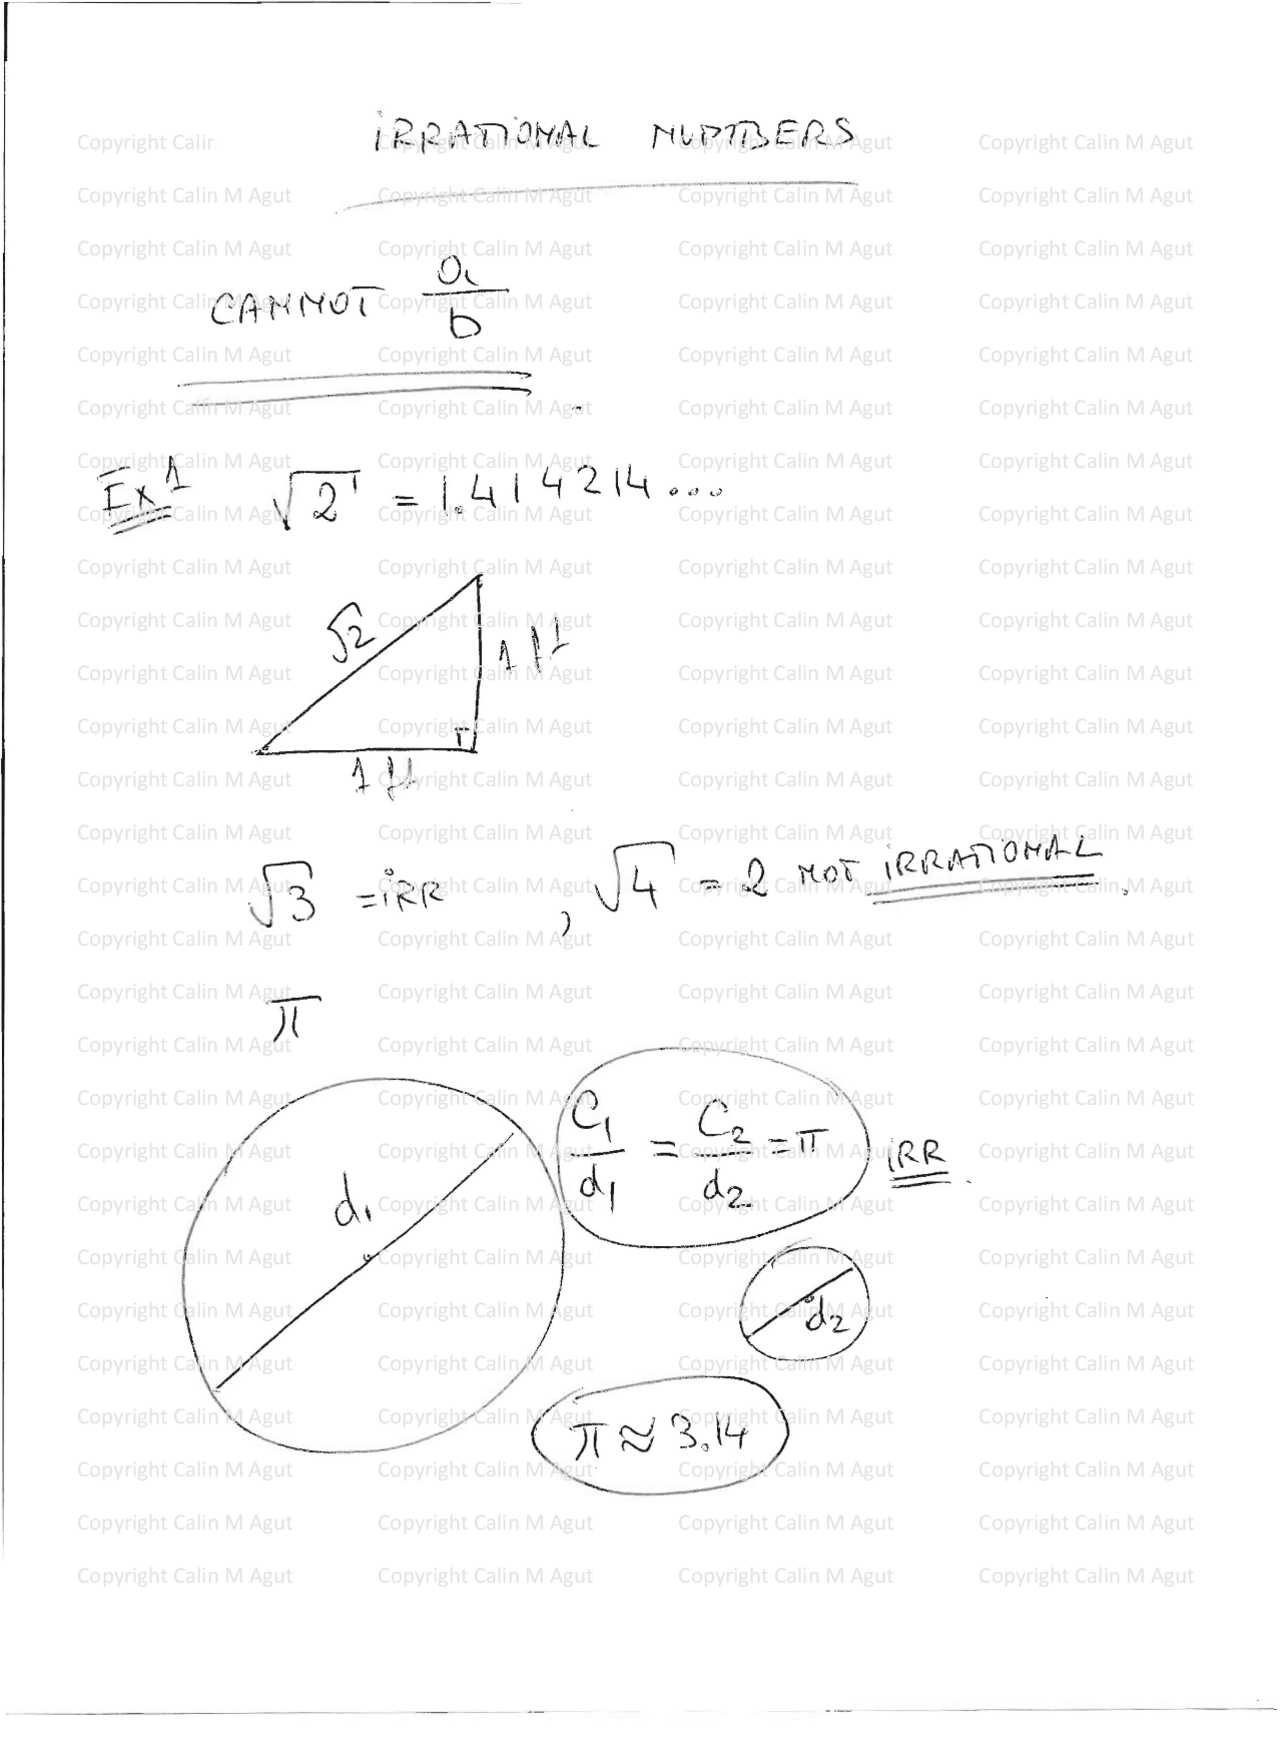 IRRATIONAL NUMBERS
CANNOT a/b
Ex 1 √2 = 1.414214...
√2
1 ft
1 ft
√3 = iRR , √4 = 2 NOT iRRATIONAL.
π
C₁/d₁ = C₂/d₂ = π iRR.
d₁
d₂
π ≈ 3.14
Copyright Calin M Agut